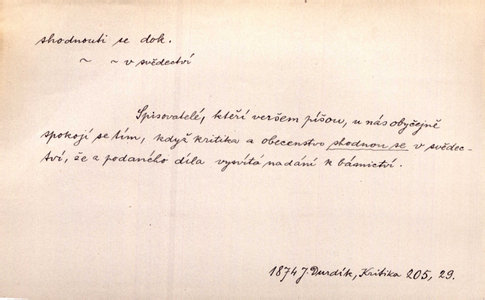 shodnouti se dok.
~ ~ v svědectví
Spisovatelé, kteří veršem píšou, u nás obyčejně
spokojí se tím, když kritika a obecenstvo shodnou se v svědec-
tví, že z podaného díla vysvítá nadání k básnictví.
1874 J. Durdík, Kritika 205, 29.